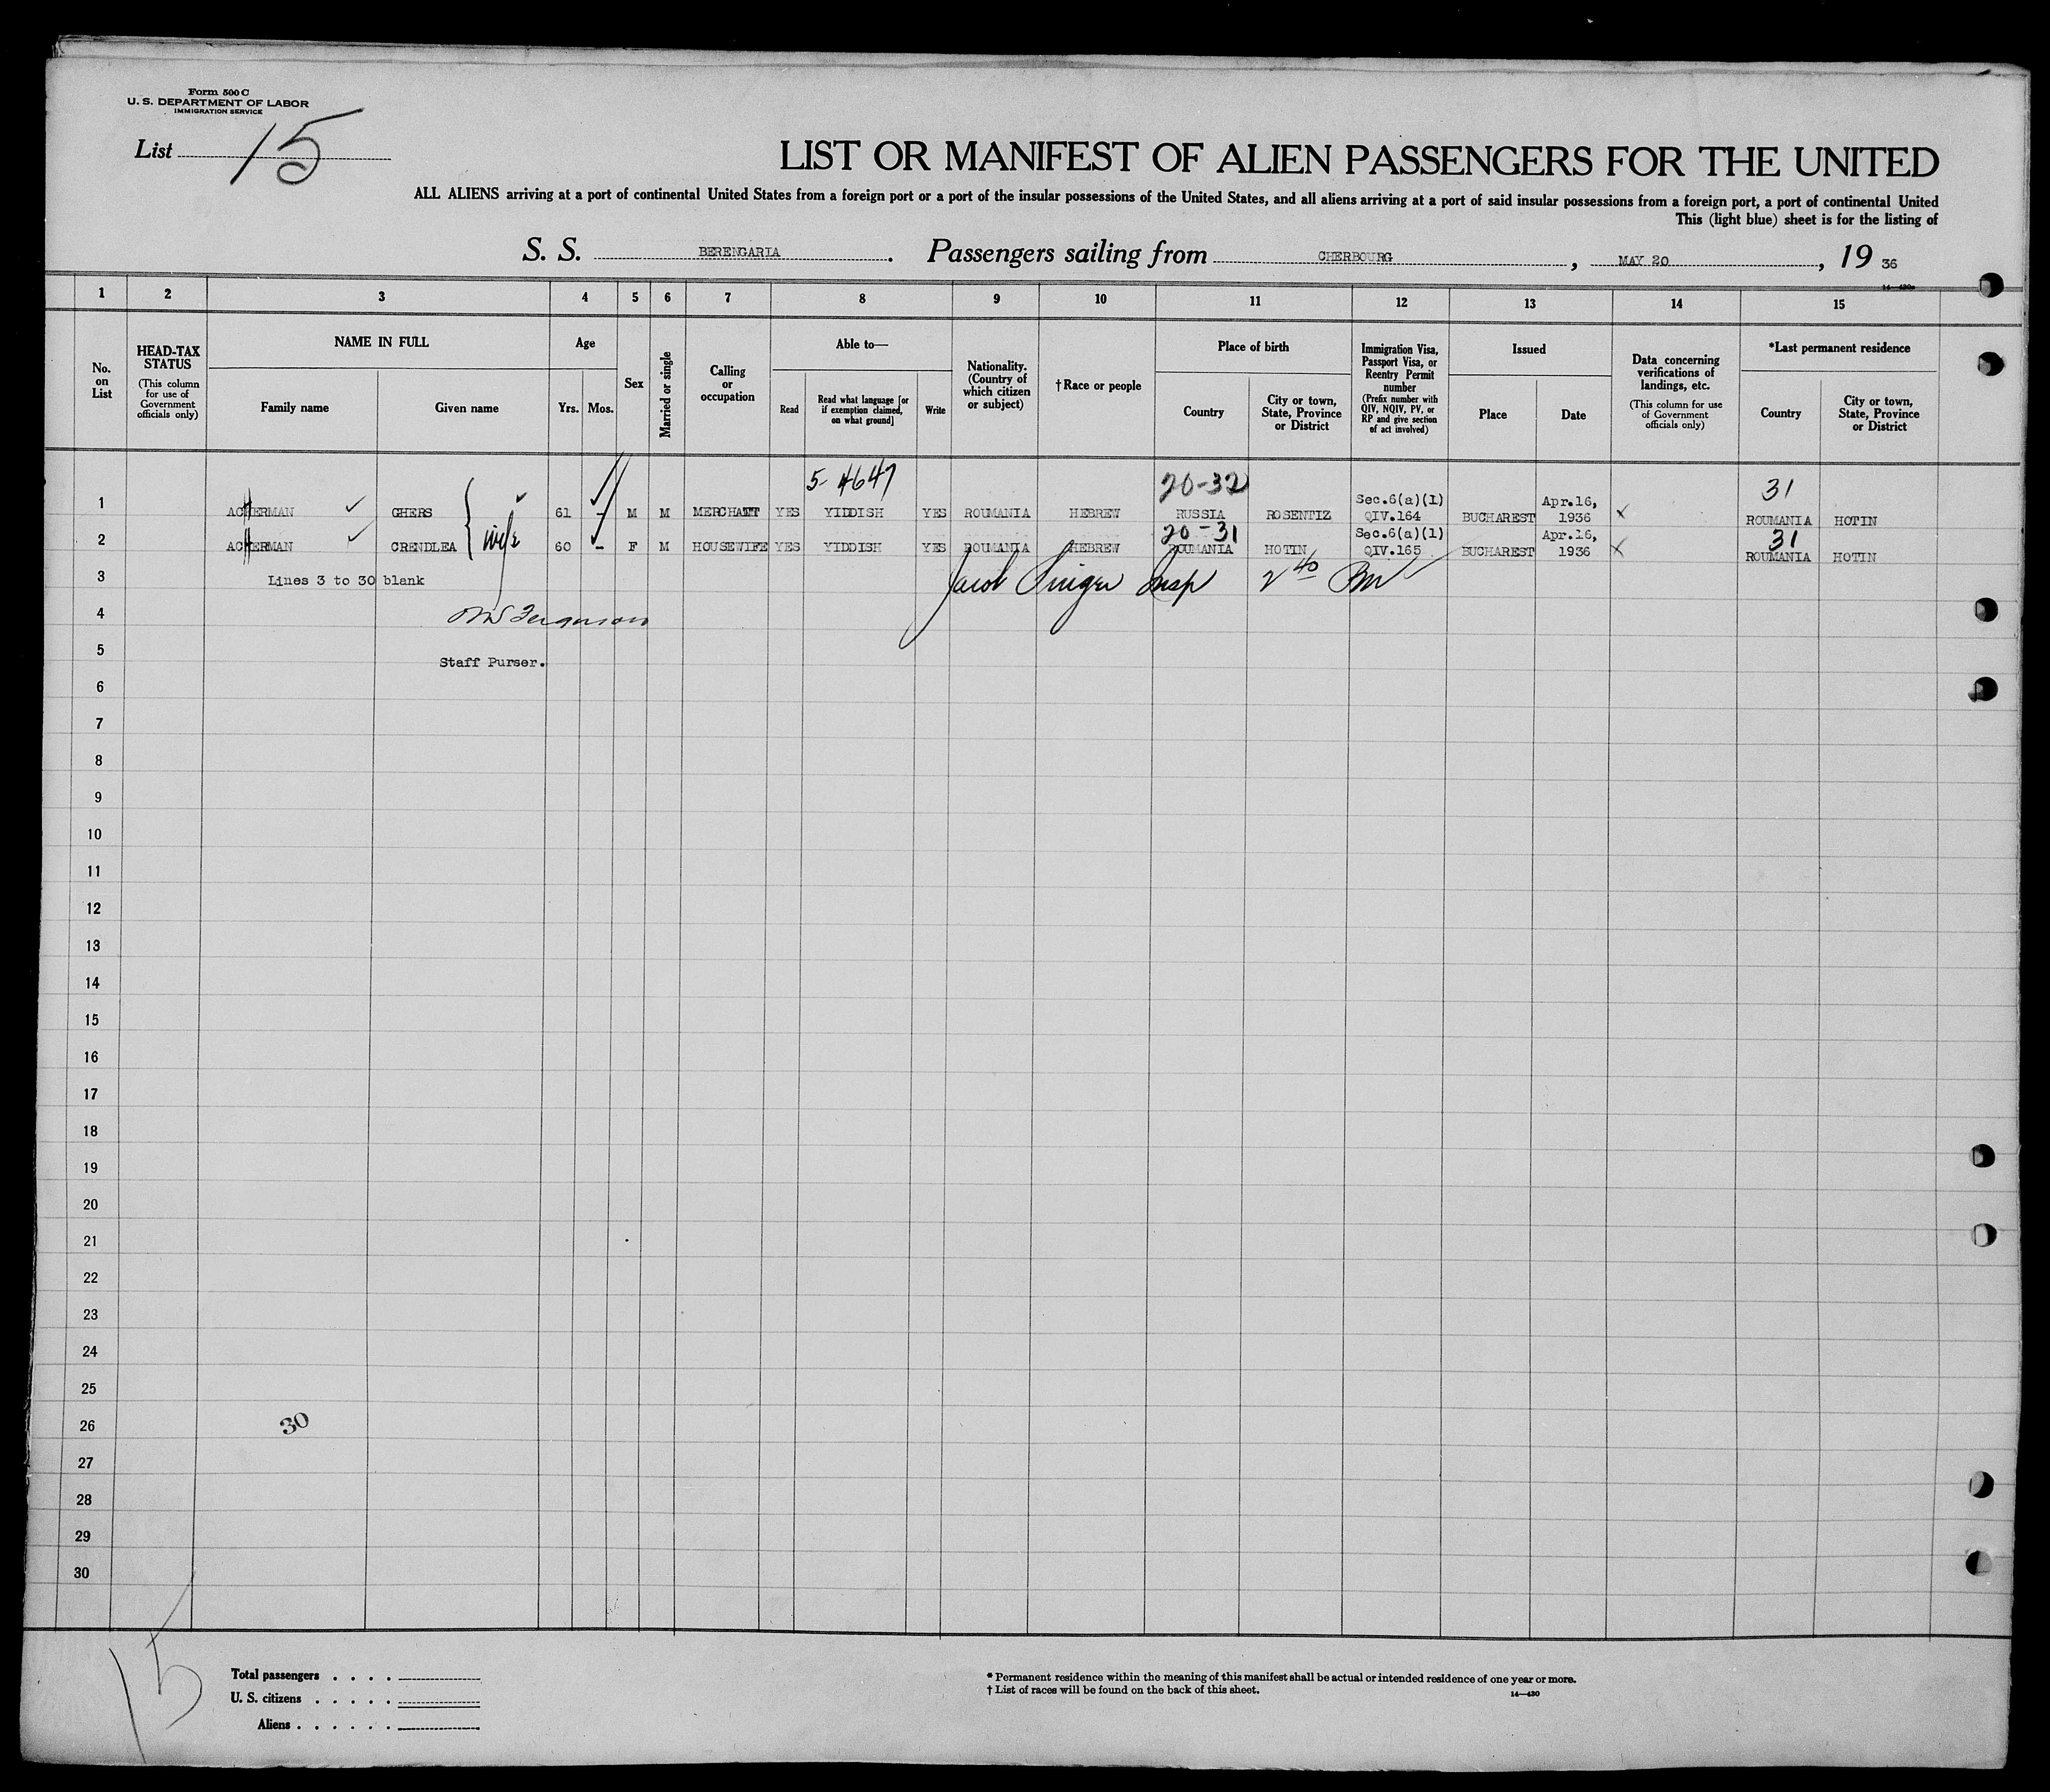 Form 500 C
U. S. DEPARTMENT OF LABOR
IMMIGRATION SERVICE
List 15
LIST OR MANIFEST OF ALIEN PASSENGERS FOR THE UNITED
ALL ALIENS arriving at a port of continental United States from a foreign port or a port of the insular possessions of the United States, and all aliens arriving at a port of said insular possessions from a foreign port, a port of continental United
This (light blue) sheet is for the listing of
S. S. BERENGARIA. Passengers sailing from CHERBOURG, MAY 20, 19 36
1 2 3 4 5 6 7 8 9 10 11 12 13 14 15
No. on List
HEAD-TAX STATUS (This column for use of Government officials only)
NAME IN FULL
Family name Given name
Age
Yrs. Mos.
Sex
Married or single
Calling or occupation
Able to—
Read Read what language [or if exemption claimed, on what ground] Write
Nationality. (Country of which citizen or subject)
† Race or people
Place of birth
Country City or town, State, Province or District
Immigration Visa, Passport Visa, or Reentry Permit number (Prefix number with QIV, NQIV, PV, or RP and give section of act involved)
Issued
Place Date
Data concerning verifications of landings, etc. (This column for use of Government officials only)
*Last permanent residence
Country City or town, State, Province or District
5-4647 20-32 31
1 ACKERMAN GHERS 61 - M M MERCHANT YES YIDDISH YES ROUMANIA HEBREW RUSSIA ROSENTIZ Sec.6(a)(1) QIV.164 BUCHAREST Apr.16, 1936 x ROUMANIA HOTIN
wife 20-31 31
2 ACKERMAN CRENDLEA 60 - F M HOUSEWIFE YES YIDDISH YES ROUMANIA HEBREW ROUMANIA HOTIN Sec.6(a)(1) QIV.165 BUCHAREST Apr.16, 1936 x ROUMANIA HOTIN
3 Lines 3 to 30 blank Jacob Singer Insp 2 40
4 Ferguson
5 Staff Purser.
6
7
8
9
10
11
12
13
14
15
16
17
18
19
20
21
22
23
24
25
26 30
27
28
29
30
15
Total passengers . . . .
U. S. citizens . . . . .
Aliens . . . . . .
* Permanent residence within the meaning of this manifest shall be actual or intended residence of one year or more.
† List of races will be found on the back of this sheet.
14—430